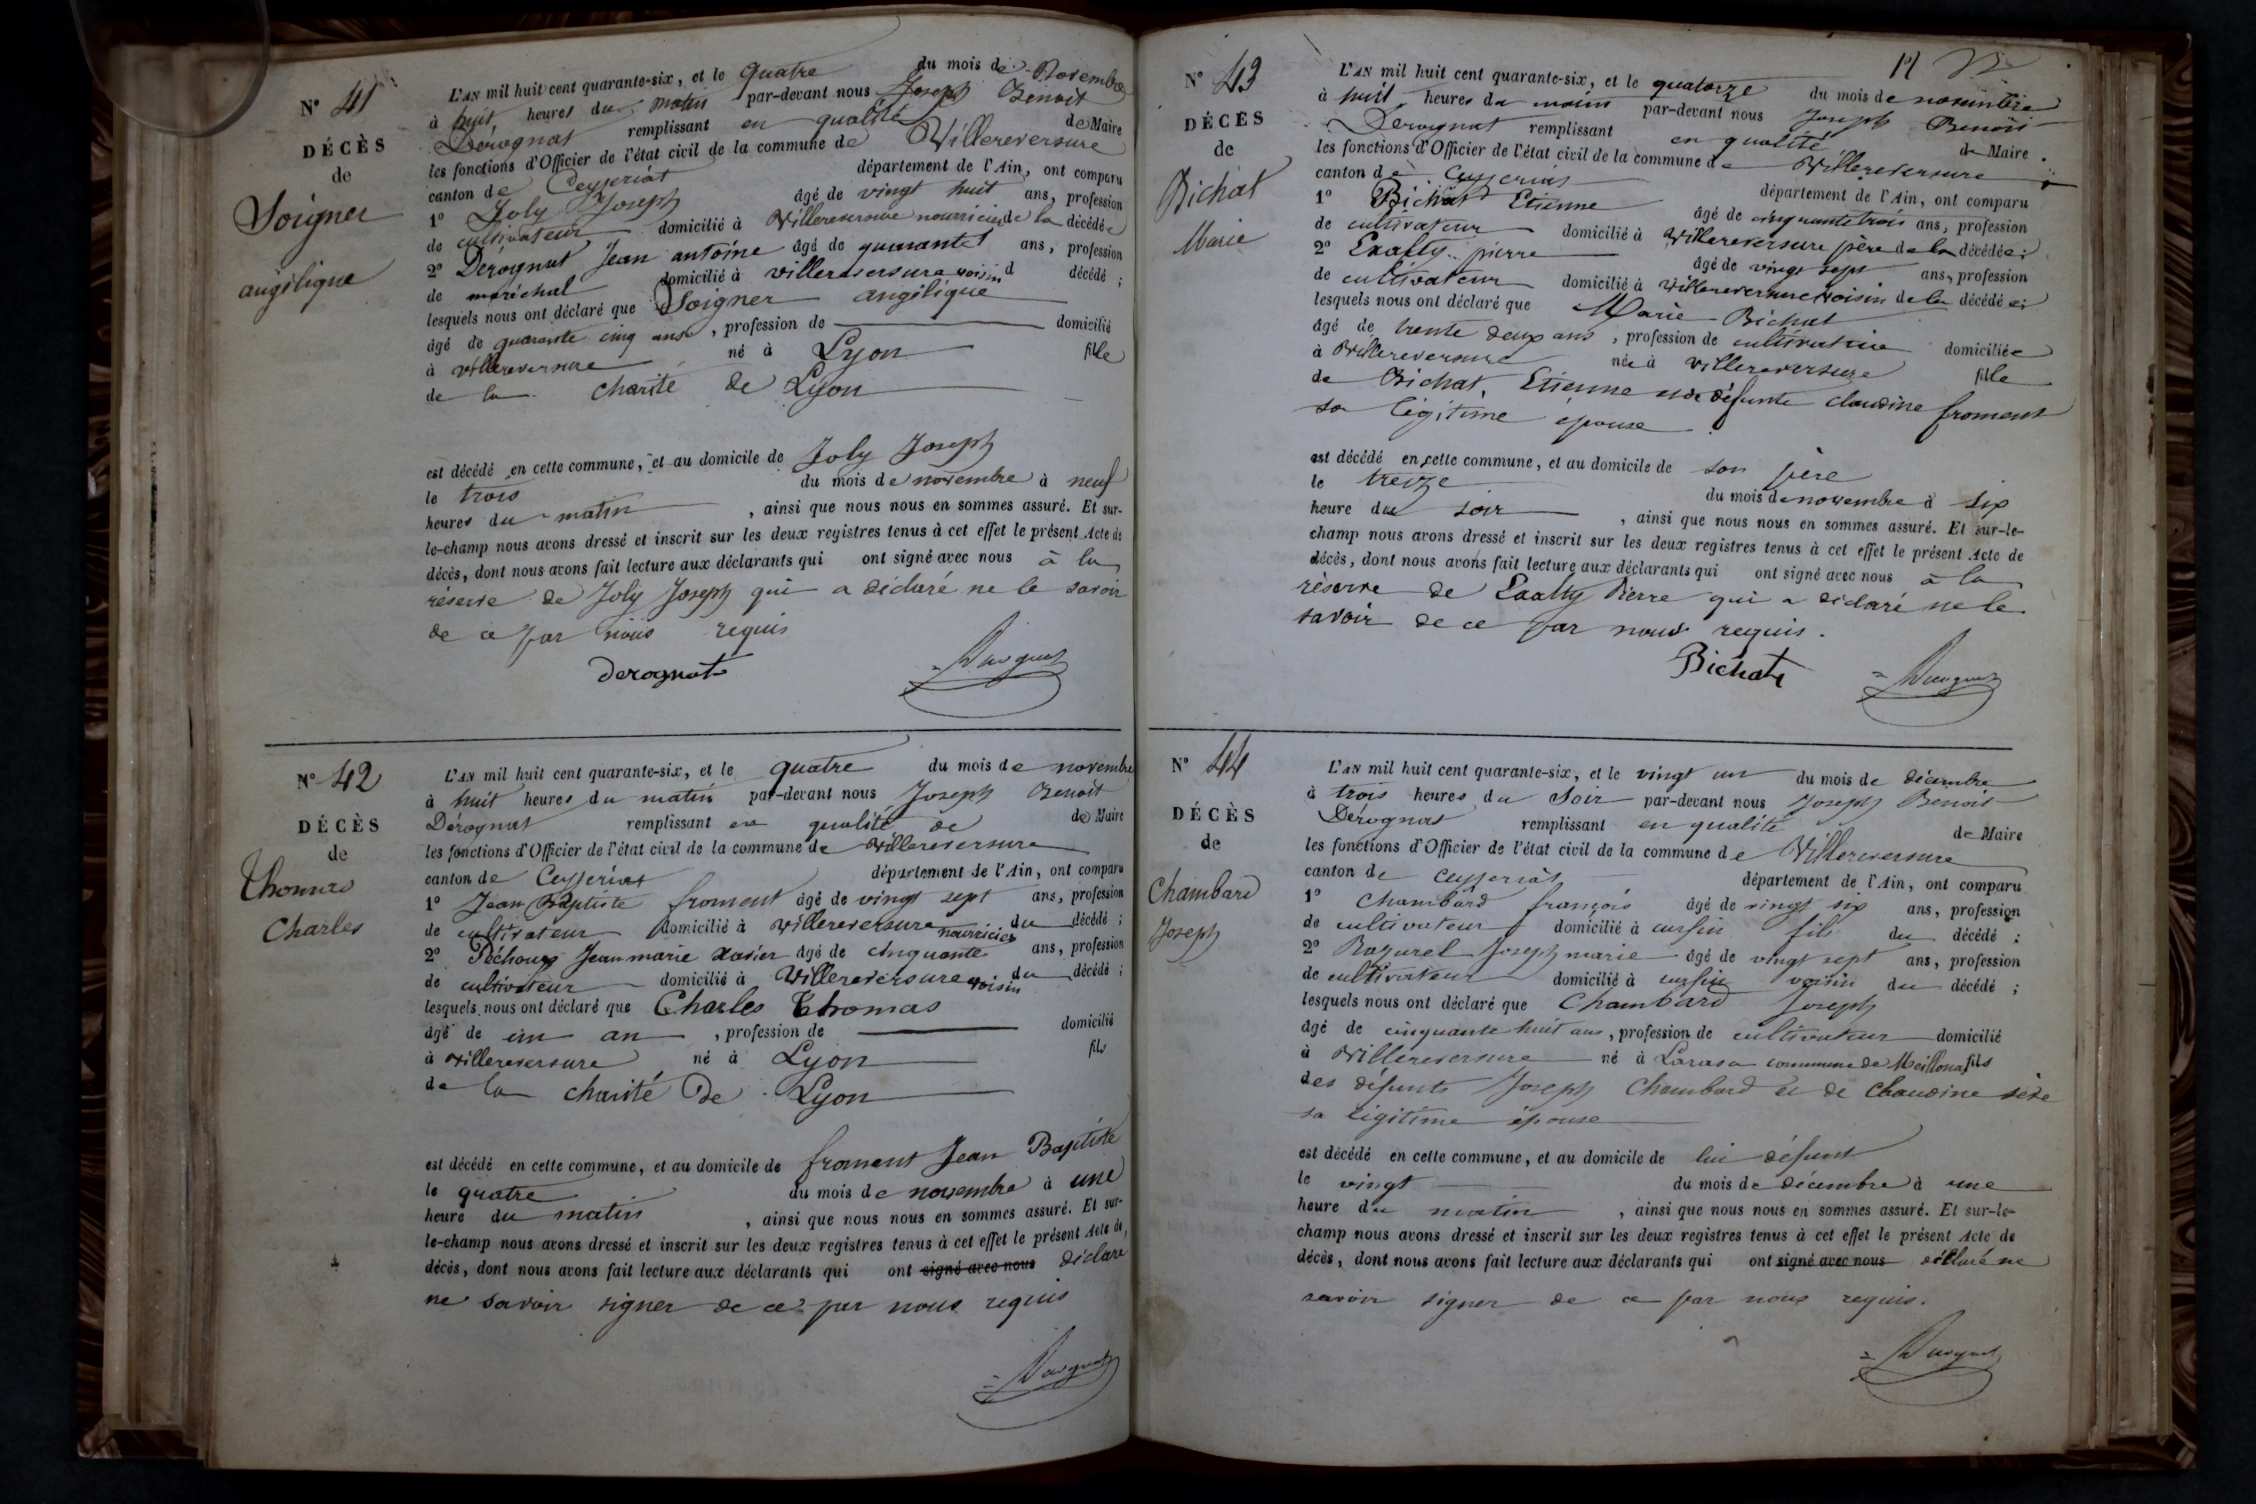 N° 41
DÉCÈS
de
Soigner
angélique
L'AN mil huit cent quarante-six, et le quatre du mois de Novembre
à huit heures du matin par-devant nous Joseph Benoit
Dérognat remplissant en qualité de Maire
les fonctions d'Officier de l'état civil de la commune de Villereversure
canton de Ceyzeriat département de l'Ain, ont comparu
1° Joly Joseph âgé de vingt huit ans, profession
de cultivateur domicilié à Villereversure nourricier de la décédée
2° Dérognat Jean antoine âgé de quarante ans, profession
de maréchal domicilié à villereversure voisin d décédé ;
lesquels nous ont déclaré que Soigner angélique
âgé de quarante cinq ans, profession de domicilié
à villereversure né à Lyon fille
de la charité de Lyon
est décédé en cette commune, et au domicile de Joly Joseph
le trois du mois de novembre à neuf
heures du matin, ainsi que nous nous en sommes assuré. Et sur-
le-champ nous avons dressé et inscrit sur les deux registres tenus à cet effet le présent Acte de
décès, dont nous avons fait lecture aux déclarants qui ont signé avec nous à la
réserve de Joly Joseph qui a déclaré ne le savoir
de ce par nous requis
derognat
N° 42
DÉCÈS
de
Thomas
Charles
L'AN mil huit cent quarante-six, et le quatre du mois de novembre
à huit heures du matin par-devant nous Joseph Benoit
Dérognat remplissant en qualité de de Maire
les fonctions d'Officier de l'état civil de la commune de villereversure
canton de Ceyzeriat département de l'Ain, ont comparu
1° Jean Baptiste froment âgé de vingt sept ans, profession
de cultivateur domicilié à villereversure nourricier du décédé ;
2° Péchoux Jean marie xavier âgé de cinquante ans, profession
de cultivateur domicilié à Villereversure voisin du décédé ;
lesquels nous ont déclaré que Charles Thomas
âgé de un an, profession de domicilié
à villereversure né à Lyon fils
de la charité de Lyon
est décédé en cette commune, et au domicile de froment Jean Baptiste
le quatre du mois de novembre à une
heure du matin, ainsi que nous nous en sommes assuré. Et sur-
le-champ nous avons dressé et inscrit sur les deux registres tenus à cet effet le présent Acte de
décès, dont nous avons fait lecture aux déclarants qui ont signé avec nous déclaré
ne savoir signer de ce par nous requis
N° 43
DÉCÈS
de
Bichat
Marie
L'AN mil huit cent quarante-six, et le quatorze du mois de novembre
à huit heures du matin par-devant nous Joseph Benoit
Derognat remplissant en qualité de Maire
les fonctions d'Officier de l'état civil de la commune de Villereversure
canton de Ceyzeriat département de l'Ain, ont comparu
1° Bichat Etienne âgé de cinquante trois ans, profession
de cultivateur domicilié à villereversure père de la décédée ;
2° pierre âgé de vingt sept ans, profession
de cultivateur domicilié à villereversure voisin de la décédée ;
lesquels nous ont déclaré que Marie Bichat
âgé de trente deux ans, profession de cultivatrice domiciliée
à Villereversure née à villereversure fille
de Bichat Etienne et de défunte claudine froment
sa légitime épouse
est décédé en cette commune, et au domicile de son père
le treize du mois de novembre à six
heure du soir, ainsi que nous nous en sommes assuré. Et sur-le-
champ nous avons dressé et inscrit sur les deux registres tenus à cet effet le présent Acte de
décès, dont nous avons fait lecture aux déclarants qui ont signé avec nous à la
réserve de Pierre qui a déclaré ne le
savoir de ce par nous requis.
Bichat
N° 44
DÉCÈS
de
Chambard
Joseph
L'AN mil huit cent quarante-six, et le vingt un du mois de décembre
à trois heures du Soir par-devant nous Joseph Benoit
Dérognat remplissant en qualité de Maire
les fonctions d'Officier de l'état civil de la commune de Villereversure
canton de ceyzeriat département de l'Ain, ont comparu
1° Chambard françois âgé de vingt six ans, profession
de cultivateur domicilié à cusfin fils du décédé ;
2° Joseph marie âgé de vingt sept ans, profession
de cultivateur domicilié à cusfin voisin du décédé ;
lesquels nous ont déclaré que Chambard Joseph
âgé de cinquante huit ans, profession de cultivateur domicilié
à Villereversure né à commune de Meillonas fils
des défunts Joseph Chambard et de Claudine
sa légitime épouse
est décédé en cette commune, et au domicile de lui défunt
le vingt du mois de décembre à une
heure du matin, ainsi que nous nous en sommes assuré. Et sur-le-
champ nous avons dressé et inscrit sur les deux registres tenus à cet effet le présent Acte de
décès, dont nous avons fait lecture aux déclarants qui ont signé avec nous déclaré ne
savoir signer de ce par nous requis.